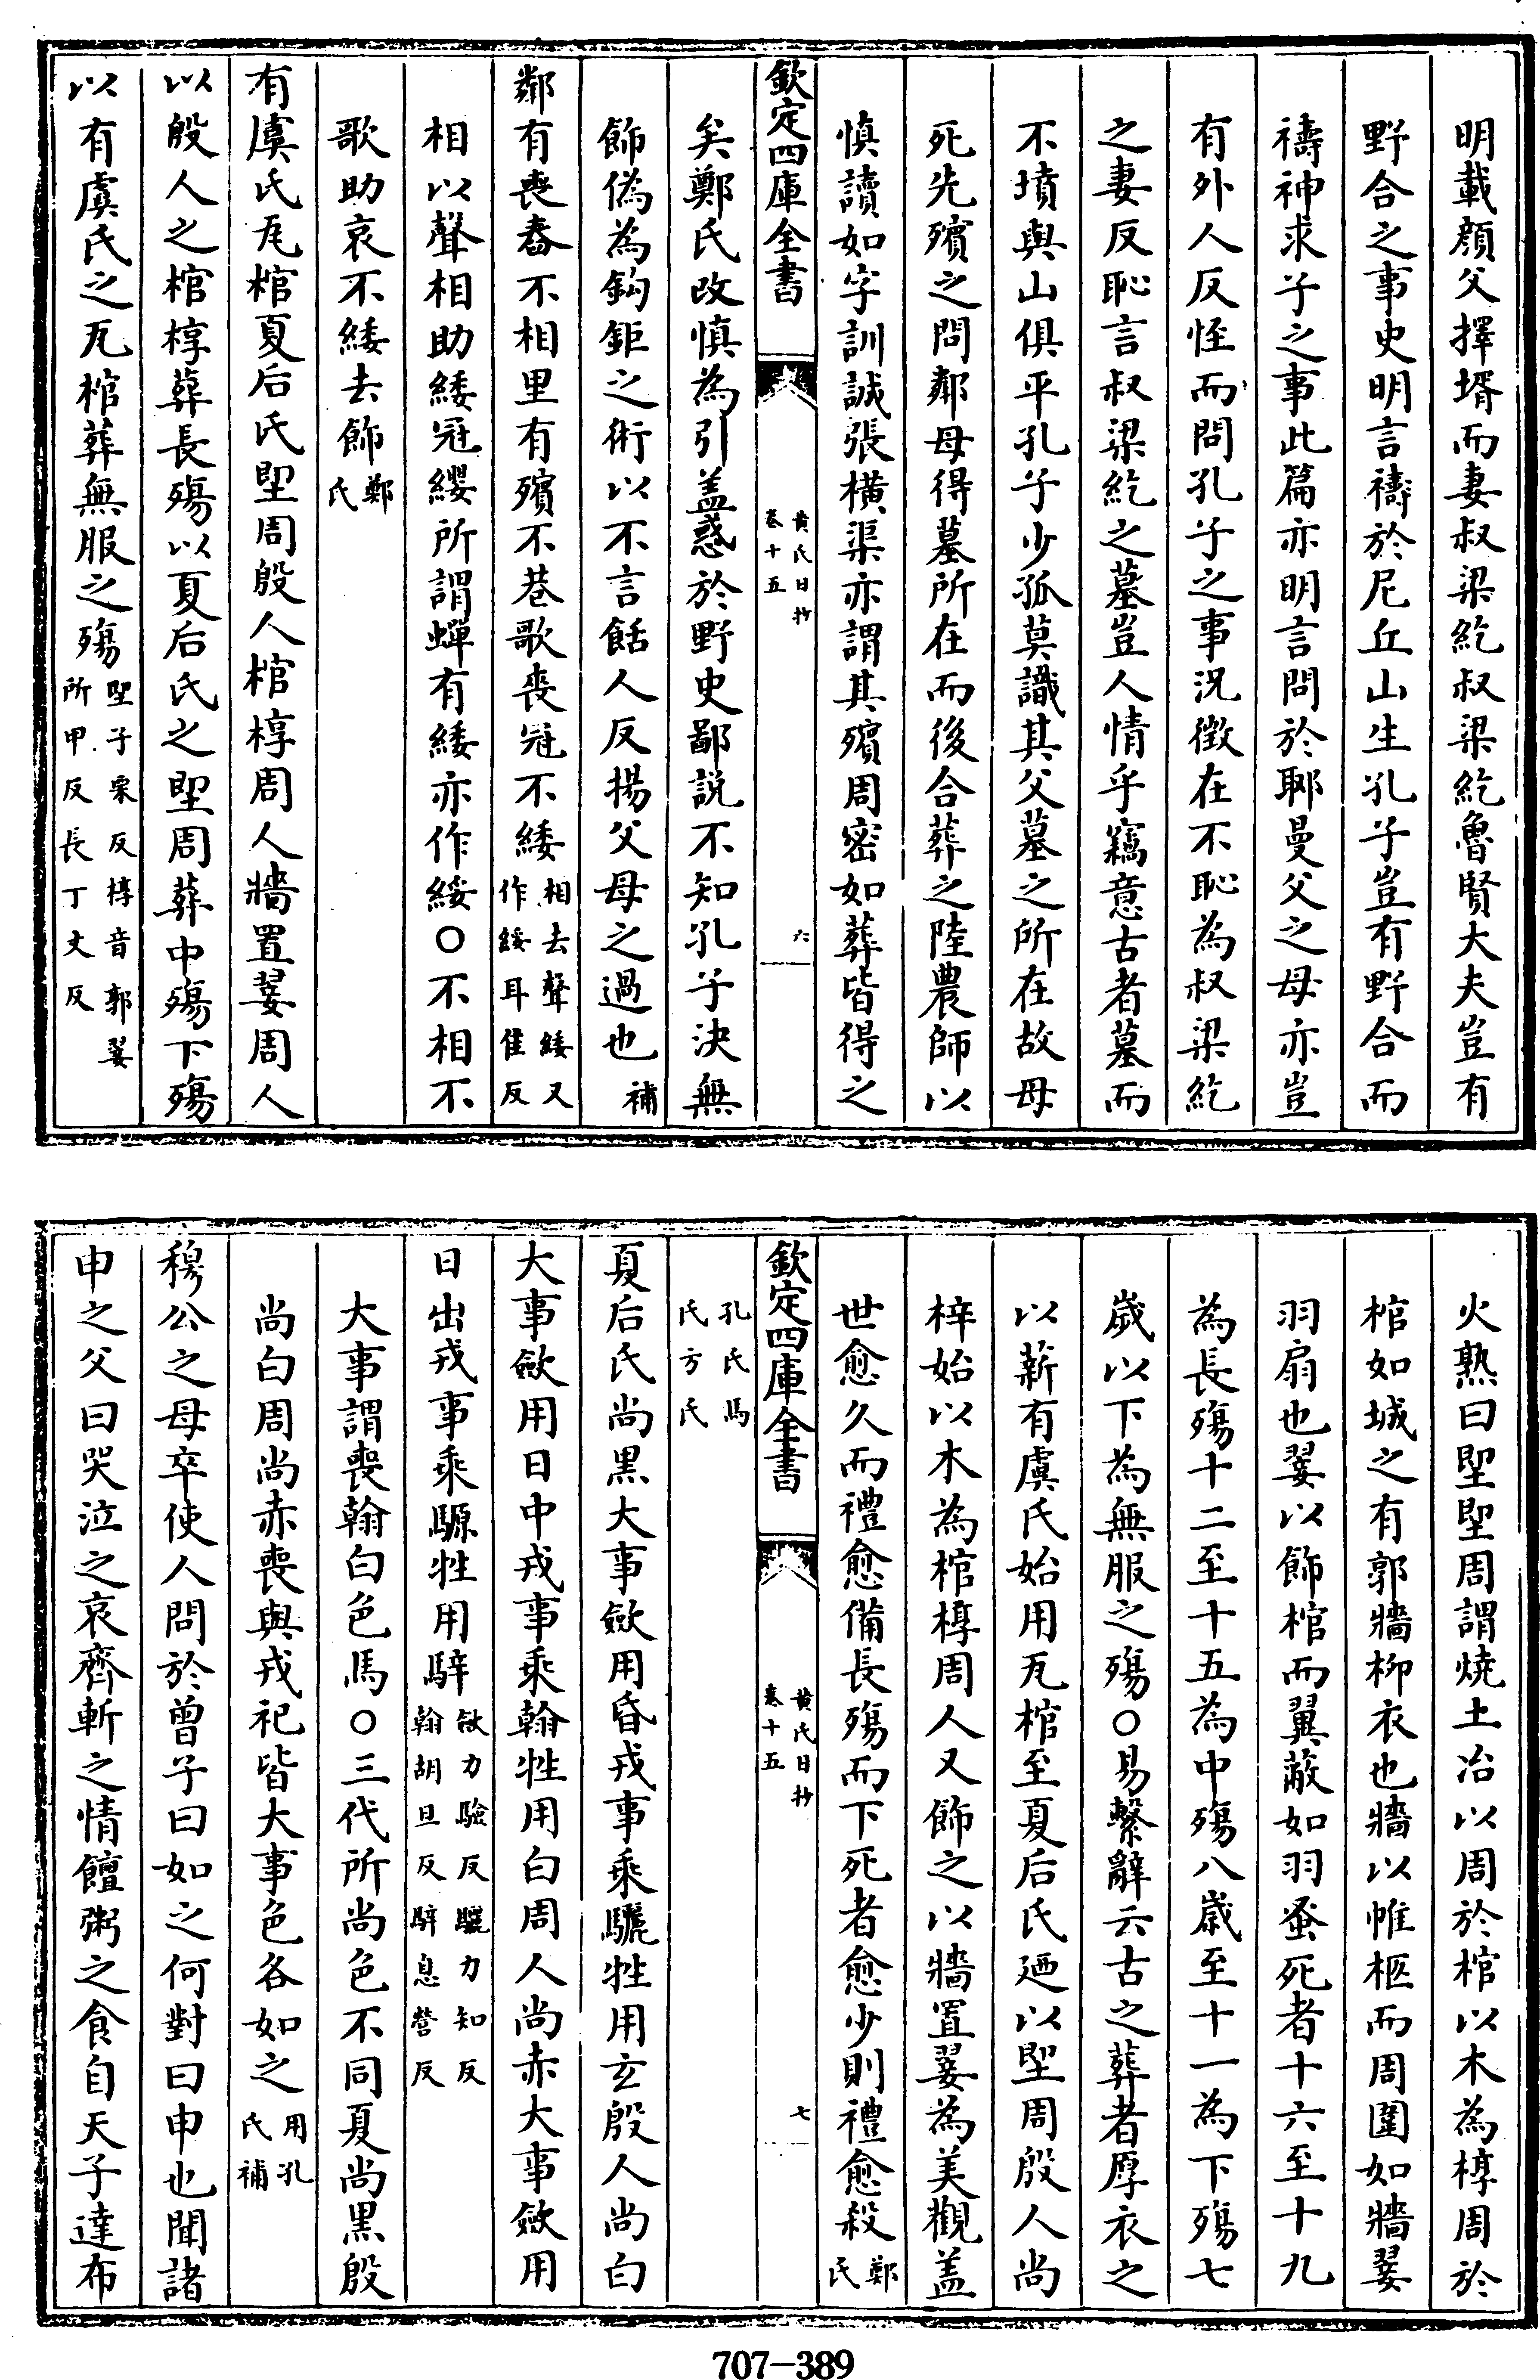 明載顔父擇壻而妻叔梁紇叔梁紇魯賢大夫豈有
野合之事史明言禱於尼丘山生孔子豈有野合而
禱神求子之事此篇亦明言問於郰曼父之母亦豈
有外人反怪而問孔子之事況徴在不恥為叔梁紇
之妻反恥言叔梁紇之墓豈人情乎竊意古者墓而
不墳與山俱平孔子少孤莫識其父墓之所在故母
死先殯之問鄰母得墓所在而後合葬之陸農師以
慎讀如字訓誠張横渠亦謂其殯周密如葬皆得之
欽定四庫全書
黄氏日抄
卷十五
六
矣鄭氏改慎為引盖惑於野史鄙説不知孔子決無
飾偽為鈎鉅之術以不言餂人反揚父母之過也補
鄰有喪舂不相里有殯不巷歌喪冠不緌相去聲緌又
作綏耳隹反
相以聲相助緌冠纓所謂蟬有緌亦作綏〇不相不
歌助哀不緌去飾鄭
氏
有虞氏瓦棺夏后氏堲周殷人棺椁周人牆置翣周人
以殷人之棺椁葬長殤以夏后氏之堲周葬中殤下殤
以有虞氏之瓦棺葬無服之殤堲子栗反椁音郭翣
所甲反長丁丈反
火熟曰堲堲周謂燒土冶以周於棺以木為椁周於
棺如城之有郭牆柳衣也牆以帷柩而周圍如牆翣
羽扇也翣以飾棺而翼蔽如羽蚤死者十六至十九
為長殤十二至十五為中殤八歲至十一為下殤七
歲以下為無服之殤〇易繫辭云古之葬者厚衣之
以薪有虞氏始用瓦棺至夏后氏廼以堲周殷人尚
梓始以木為棺椁周人又飾之以牆置翣為美觀盖
世愈久而禮愈備長殤而下死者愈少則禮愈殺鄭
氏
欽定四庫全書
黄氏日抄
卷十五
七
孔氏馬
氏方氏
夏后氏尚黒大事斂用昏戎事乘驪牲用玄殷人尚白
大事斂用日中戎事乘翰牲用白周人尚赤大事斂用
日出戎事乘騵牲用騂斂力驗反驪力知反
翰胡旦反騂息營反
大事謂喪翰白色馬〇三代所尚色不同夏尚黒殷
尚白周尚赤喪與戎祀皆大事色各如之用孔
氏補
穆公之母卒使人問於曾子曰如之何對曰申也聞諸
申之父曰哭泣之哀齊斬之情饘粥之食自天子達布
707-389